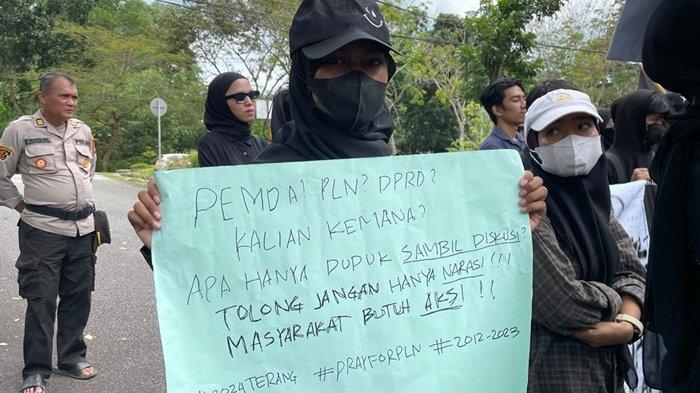 PEMDA? PLN? DPRD?
KALIAN KEMANA?
APA HANYA DUDUK SAMBIL DISKUSI?
TOLONG JANGAN HANYA NARASI!!!
MASYARAKAT BUTUH AKSI!!
#PRAYFORPLN #2012-2023